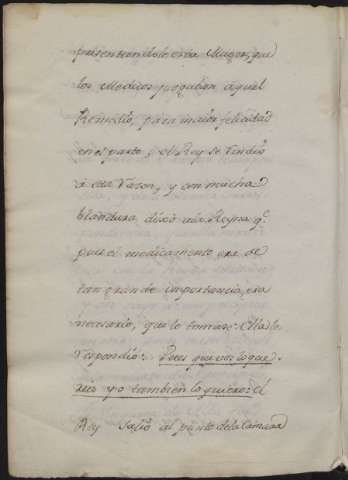 presentandole esta Muger, que
los Medicos juzgaban aquel
Remedio, para maior felicidad
en el parto, el Rey se rindio
à esta razon, y con mucha
blandura dixo à la Reyna q.e
pues el medicamento era de
tan grande importancia, era
necesario, que lo tomase: Ella le
respondio: Pues que vos lo que-
reis yo tambien lo quiero: el
Rey salio al punto de la Camara